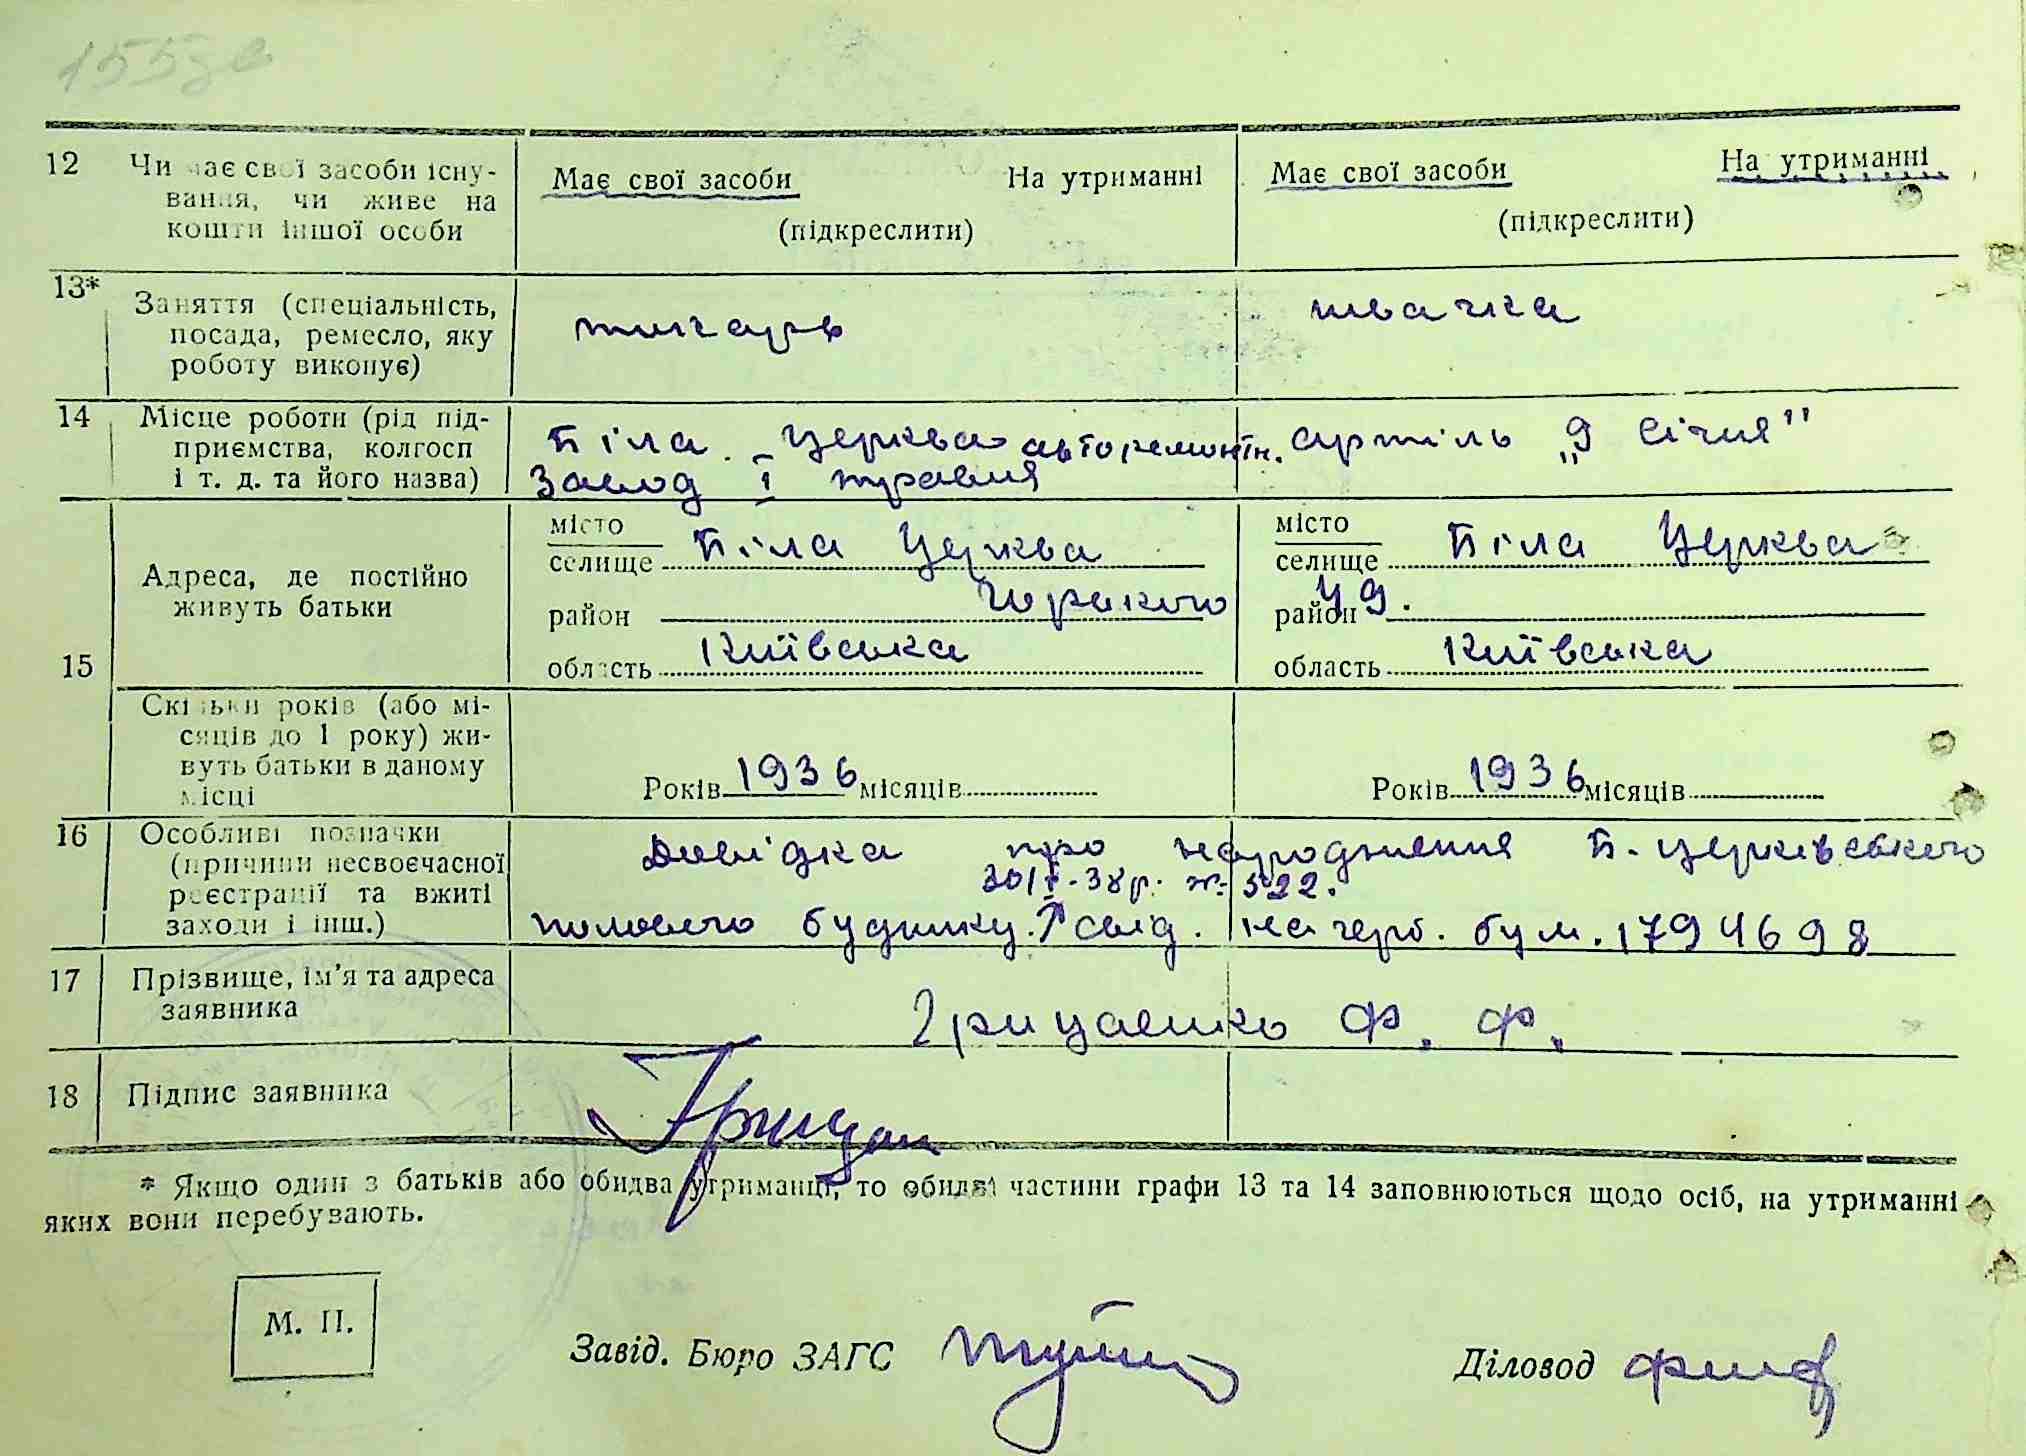 155зв
12 Чи має свої засоби існу- Має свої засоби На утриманні Має свої засоби На утриманні
вання, чи живе на
кошти іншої особи (підкреслити) (підкреслити)
13* Заняття (спеціальність, швачка
посада, ремесло, яку токарь
роботу виконує)
14 Місце роботи (рід під- Біла Церква авторемонтн. артіль „9 Січня"
приємства, колгосп
і т. д. та його назва) Завод І травня
місто місто
селище Біла Церква селище Біла Церква
Адреса, де постійно
живуть батьки район Горького район 49.
15 область Київська область Київська
Скільки років (або мі-
сяців до 1 року) жи-
вуть батьки в даному Років 1936 місяців Років 1936 місяців
місці
16 Особливі позначки Довідка про народження Б-церківського
(причини несвоєчасної
реєстрації та вжиті 38р. № 522.
заходи і інш.) пологого будинку. свід. на герб. бум. 1794698
17 Прізвище, ім'я та адреса
заявника Грицаенко Ф. Ф.
18 Підпис заявника Грицан
* Якщо один з батьків або обидва утриманці, то обидві частини графи 13 та 14 заповнюються щодо осіб, на утриманні
яких вони перебувають.
М. П.
Завід. Бюро ЗАГС Діловод